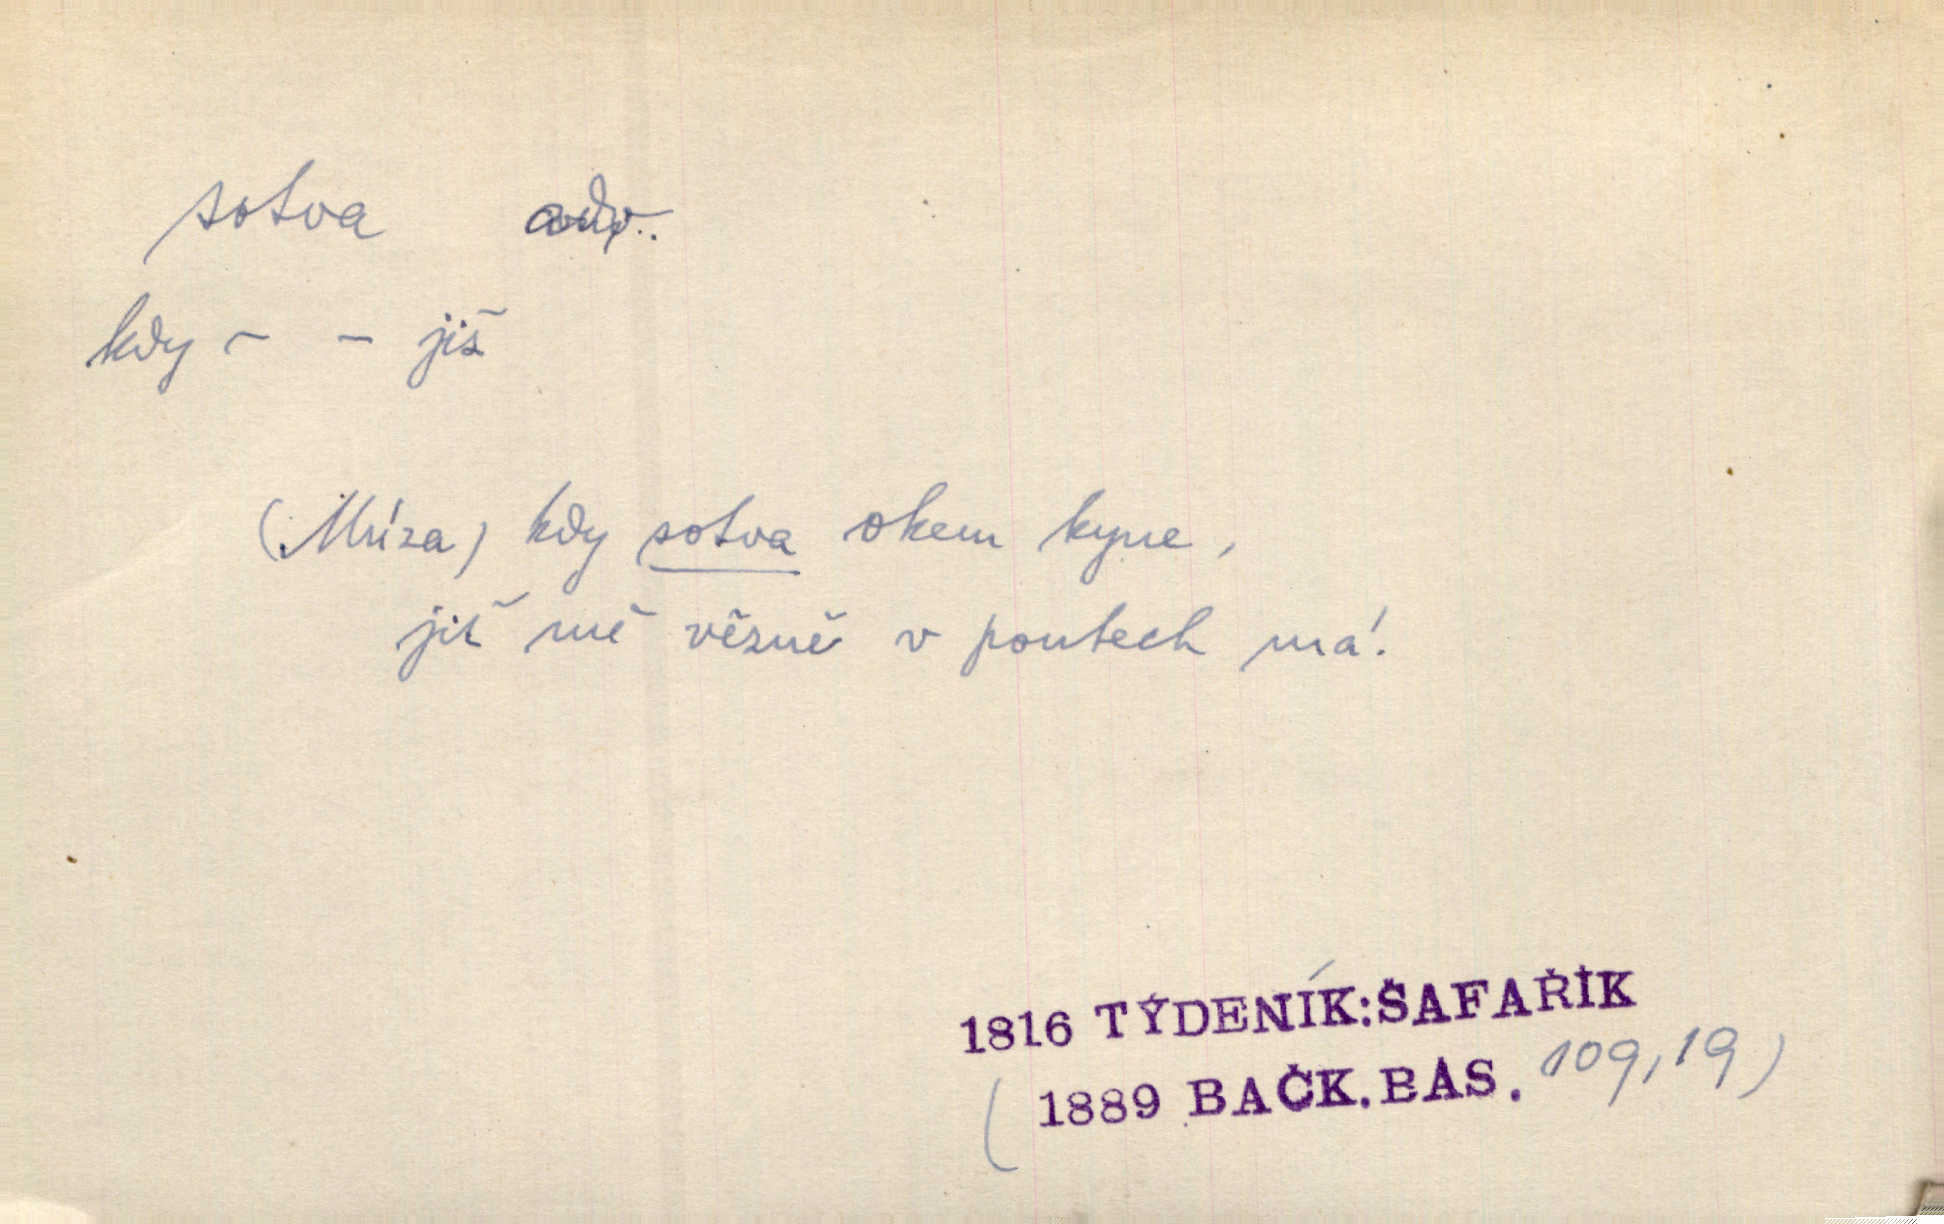 sotva adv.
kdy - - již
(Múza) kdy sotva okem kyne,
již mě vězně v poutech má!
1816 TÝDENÍK:ŠAFAŘÍK
(1889 BAČK.BAS. 109,19)